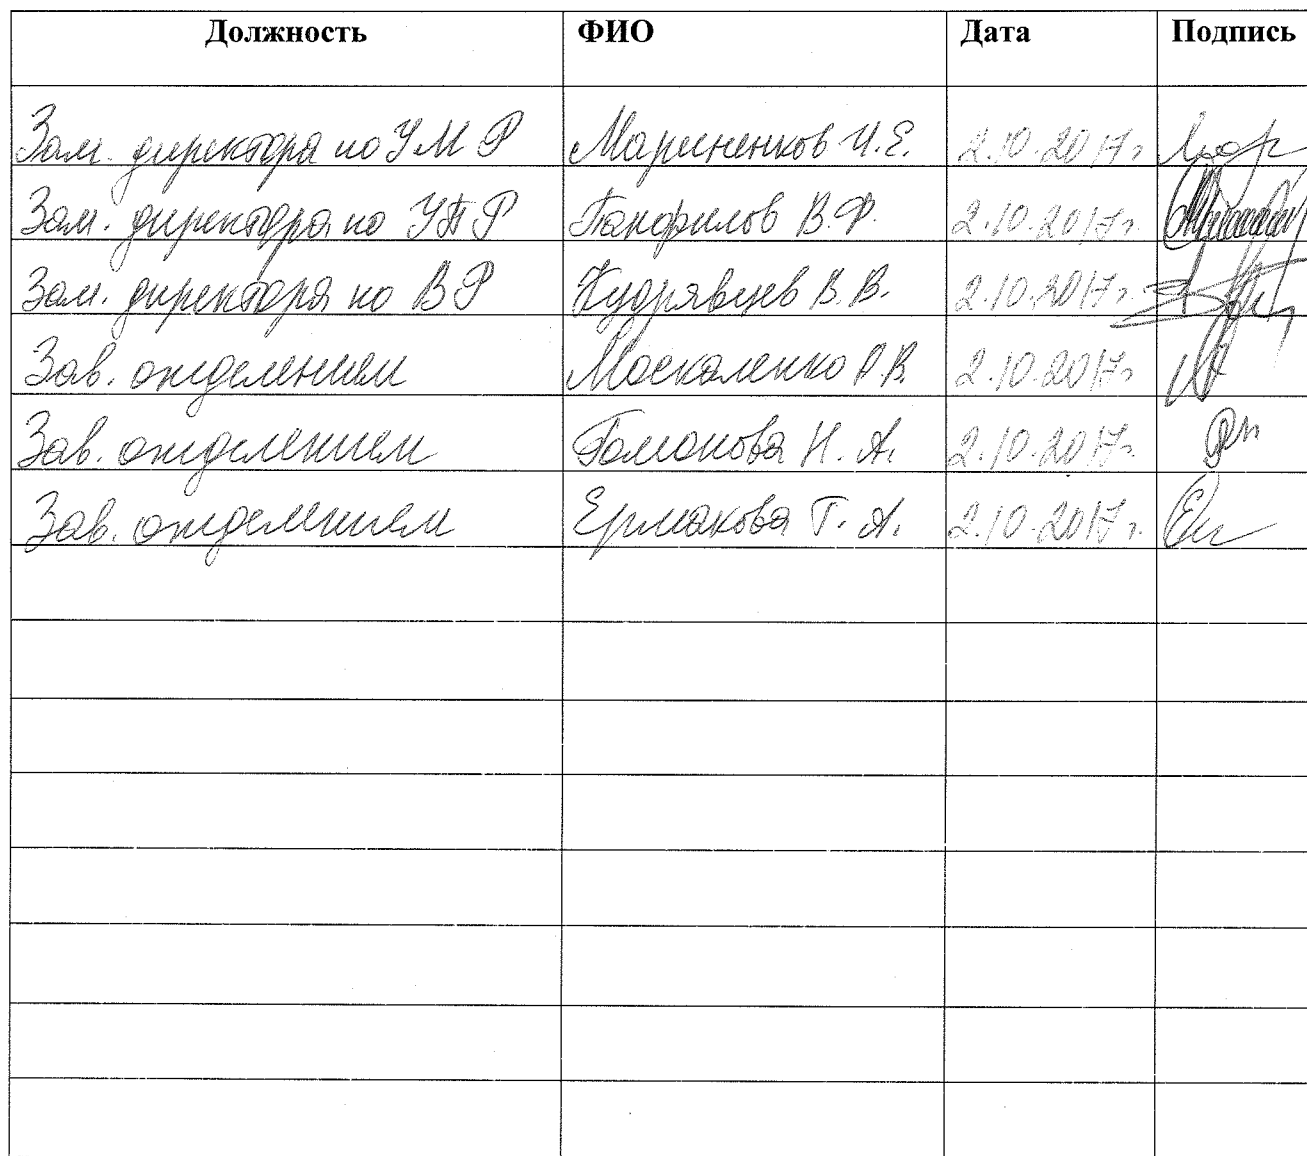 Должность ФИО Дата Подпись
Зам. директора по УМР Мариненков И.Е. 2.10.2017г.
Зам. директора по УПР Панфилов В.Ф. 2.10.2017г.
Зам. директора по ВР Кудрявцев В.В. 2.10.2017г.
Зав. отделением Москаленко Р.В. 2.10.2017г.
Зав. отделением Гомонова Н.А. 2.10.2017г.
Зав. отделением Ермакова Т.А. 2.10.2017г.